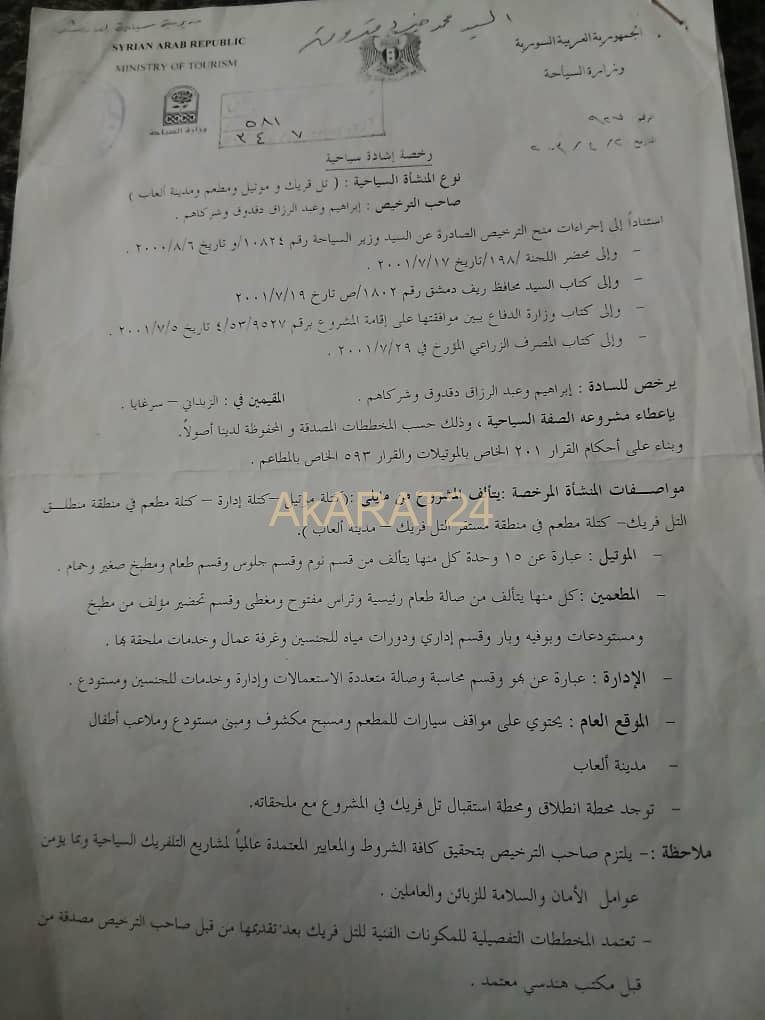 السيد محمد
SYRIAN ARAB REPUBLIC
MINISTRY OF TOURISM
الجمهورية العربية السورية
وزارة السياحة
وزارة السياحة
٥٨١
٣٤ ٧
الرقم ٩٢٧
التاريخ ٢ / ٤ / ٢٠٠٢
رخصة إشادة سياحية
نوع المنشأة السياحية : ( تل فريك و موتيل ومطعم ومدينة ألعاب )
صاحب الترخيص : إبراهيم وعبد الرزاق دقدوق وشركاهم .
استناداً إلى إجراءات منح الترخيص الصادرة عن السيد وزير السياحة رقم ١٠٨٢٤/و تاريخ ٢٠٠٠/٨/٦ .
– وإلى محضر اللجنة /١٩٨/تاريخ ٢٠٠١/٧/١٧ .
– وإلى كتاب السيد محافظ ريف دمشق رقم ١٨٠٢/ص تارخ ٢٠٠١/٧/١٩
– وإلى كتاب وزارة الدفاع يبين موافقتها على إقامة المشروع برقم ٤/٥٣/٩٥٢٧ تاريخ ٢٠٠١/٧/٥ .
– وإلى كتاب المصرف الزراعي المؤرخ في ٢٠٠١/٧/٢٩ .
يرخص للسادة : إبراهيم وعبد الرزاق دقدوق وشركاهم . المقيمين في : الزبداني – سرغايا .
بإعطاء مشروعه الصفة السياحية ، وذلك حسب المخططات المصدقة و المحفوظة لدينا أصولاً.
وبناء على أحكام القرار ٢٠١ الخاص بالموتيلات والقرار ٥٩٣ الخاص بالمطاعم .
مواصفات المنشأة المرخصة :يتألف المشروع من مايلي :(كتلة موتيل –كتلة إدارة – كتلة مطعم في منطقة منطلق
التل فريك– كتلة مطعم في منطقة مستقر التل فريك – مدينة ألعاب ).
– الموتيل : عبارة عن ١٥ وحدة كل منها يتألف من قسم نوم وقسم جلوس وقسم طعام ومطبخ صغير وحمام .
– المطعمين :كل منها يتألف من صالة طعام رئيسية وتراس مفتوح ومغطى وقسم تحضير مؤلف من مطبخ
ومستودعات وبوفيه وبار وقسم إداري ودورات مياه للجنسين وغرفة عمال وخدمات ملحقة بها .
– الإدارة : عبارة عن بهو وقسم محاسبة وصالة متعددة الاستعمالات وإدارة وخدمات للجنسين ومستودع .
– الموقع العام : يحتوي على مواقف سيارات للمطعم ومسبح مكشوف ومبنى مستودع وملاعب أطفال
– مدينة ألعاب
– توجد محطة انطلاق ومحطة استقبال تل فريك في المشروع مع ملحقاته.
ملاحظة :– يلتزم صاحب الترخيص بتحقيق كافة الشروط والمعايير المعتمدة عالمياً لمشاريع التلفريك السياحية وبما يؤمن
عوامل الأمان والسلامة للزبائن والعاملين .
– تعتمد المخططات التفصيلية للمكونات الفنية للتل فريك بعد تقديمها من قبل صاحب الترخيص مصدقة من
قبل مكتب هندسي معتمد .
AKARAT24